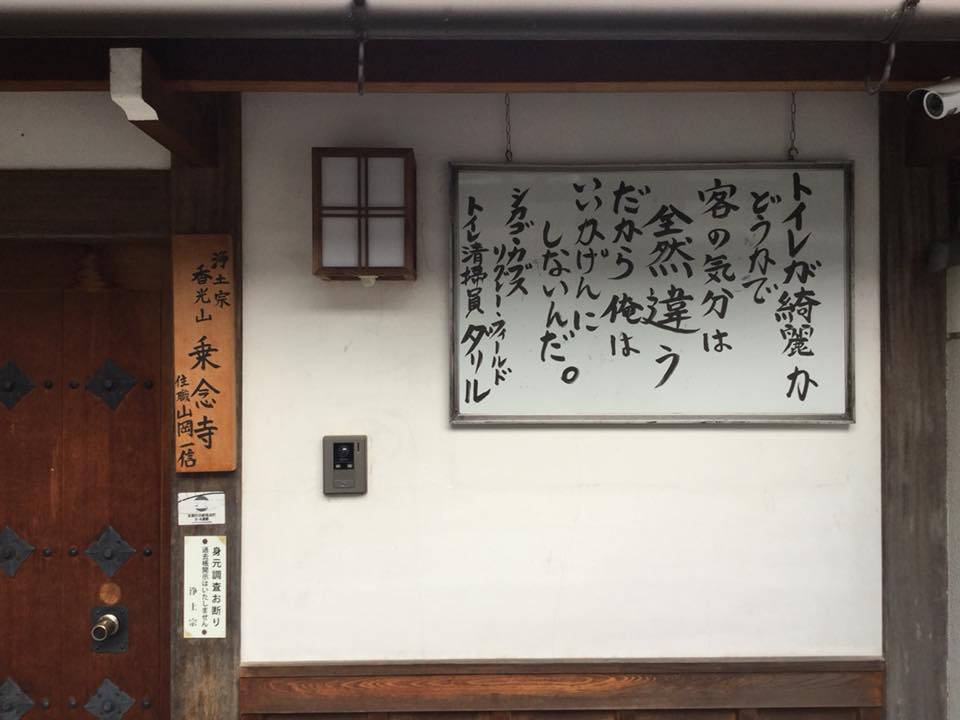 トイレが綺麗か
どうかで
客の気分は
全然違う
だから俺は
いいかげんに
しないんだ。
シカゴ・カブス
リグレー・フィールド
トイレ清掃員 ダリル
浄土宗
香光山 乗念寺
住職 山岡一信
身元調査お断り
過去帳開示はいたしません
浄土宗